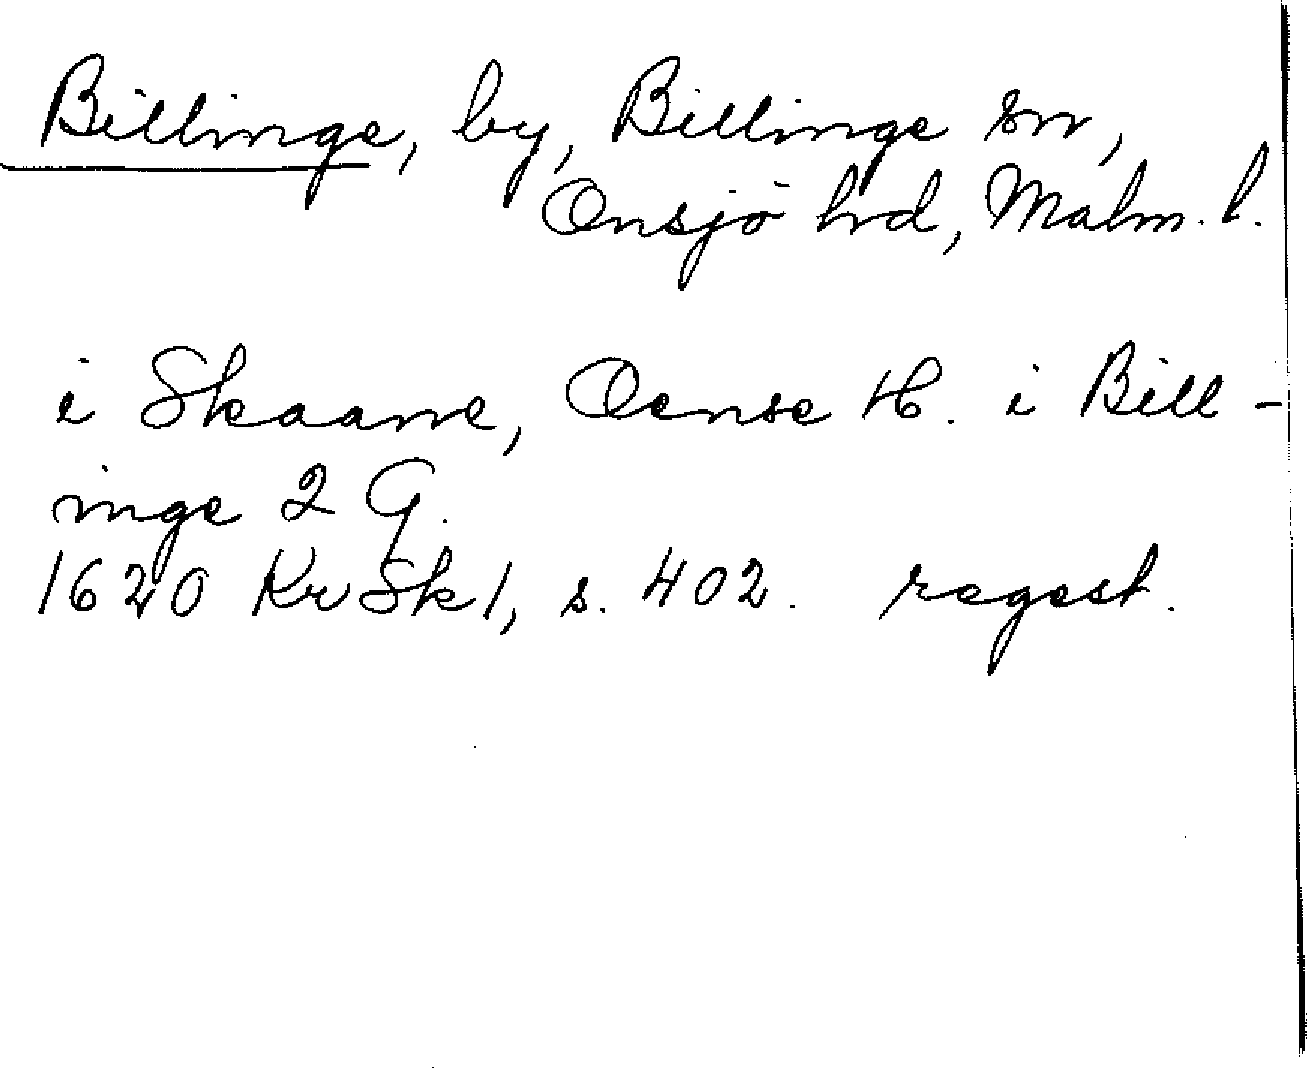 Billinge, by, Billinge sn,
Onsjö hrd, Malm. l.
i Skaane, Oense H. i Bill-
inge 2 G.
1620 KrSk 1, s. 402. regest.